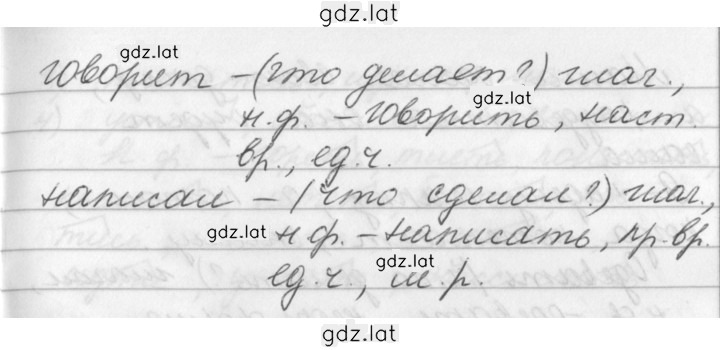 gdz.lat
gdz.lat
говорит – (что делает?) глаг.,
gdz.lat
н.ф. – говорить, наст.
вр., ед.ч.
написал – (что сделал?) глаг.,
gdz.lat н.ф. – написать, пр.вр.
gdz.lat
ед.ч., м.р.
gdz.lat